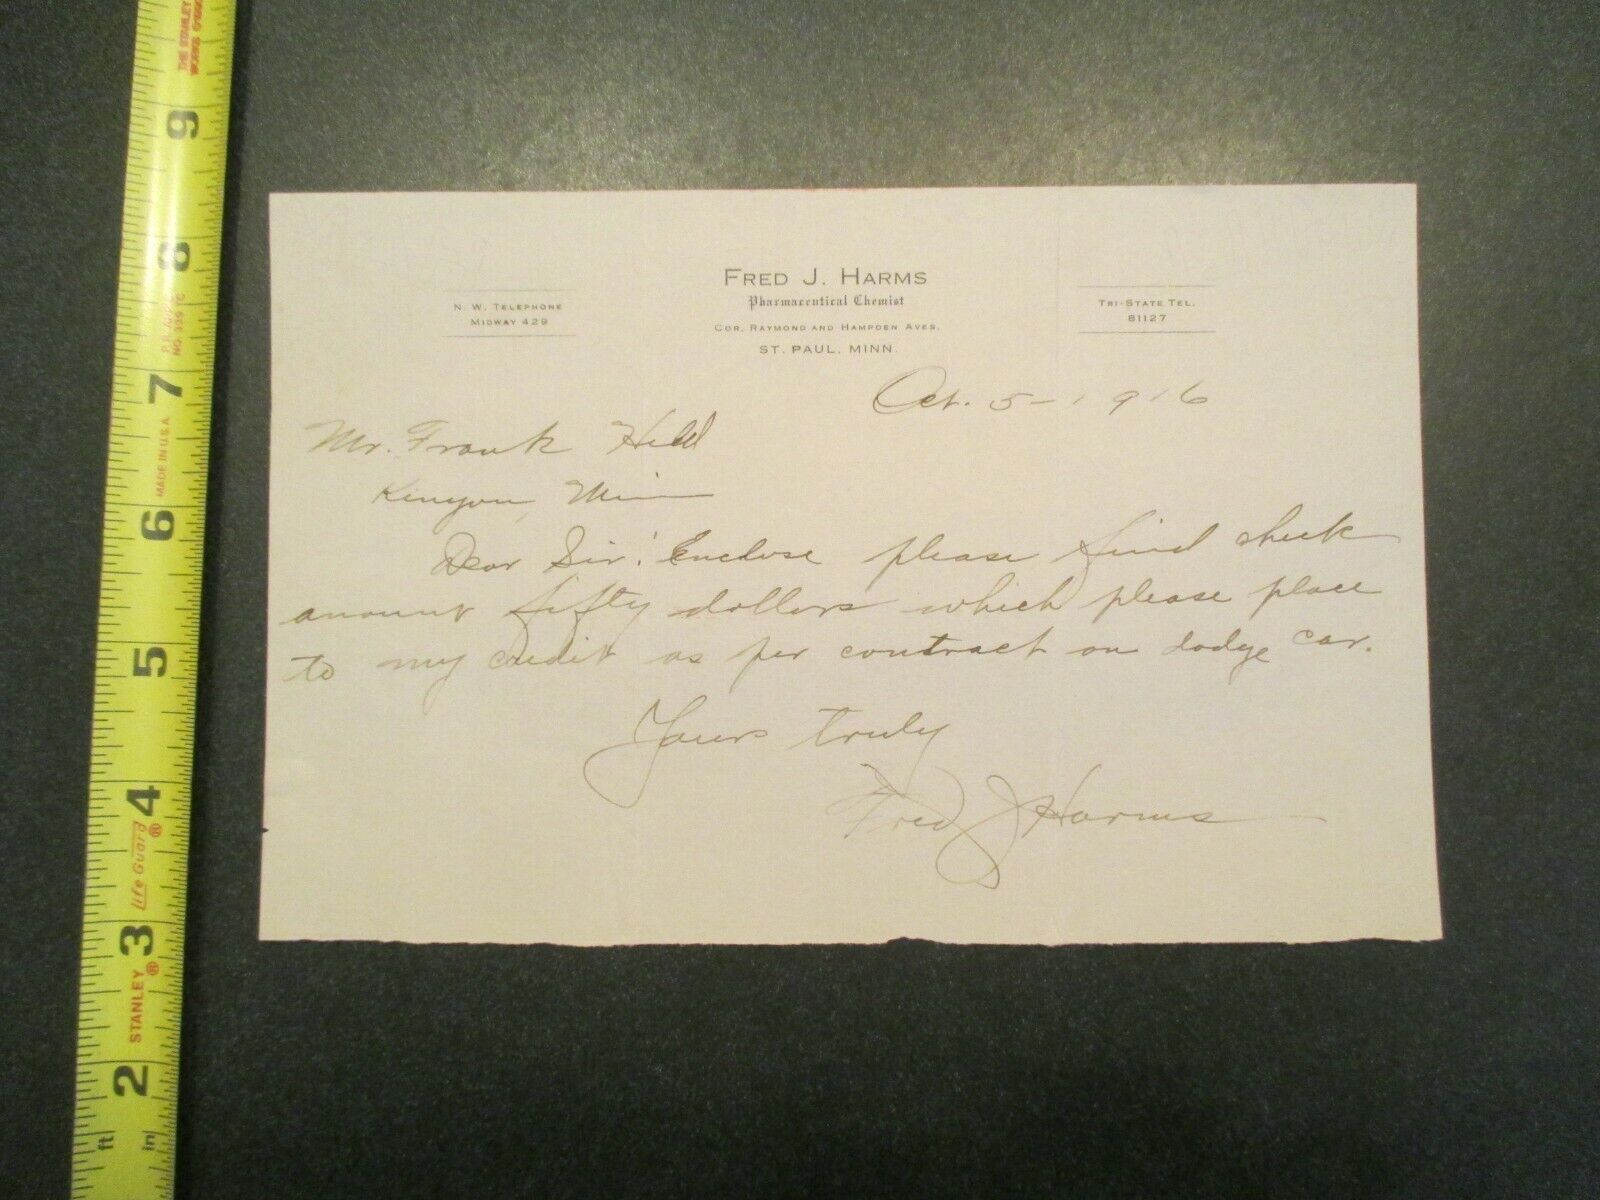 THE STANLEY
9
8
P.L. 
NO. 33
7
MADE IN U.S.A.
6
5
4
Life Guard®
3
STANLEY®
2
ft in
FRED J. HARMS
Pharmaceutical Chemist
COR. RAYMOND AND HAMPDEN AVES.
ST. PAUL, MINN.
N. W. TELEPHONE
MIDWAY 429
TRI-STATE TEL.
81127
Oct. 5-1916
Mr. Frank Held
Kenyon, Minn
Dear Sir: Enclose please find check
amount fifty dollars which please place
to my credit as per contract on dodge car.
Yours truly
Fred J Harms